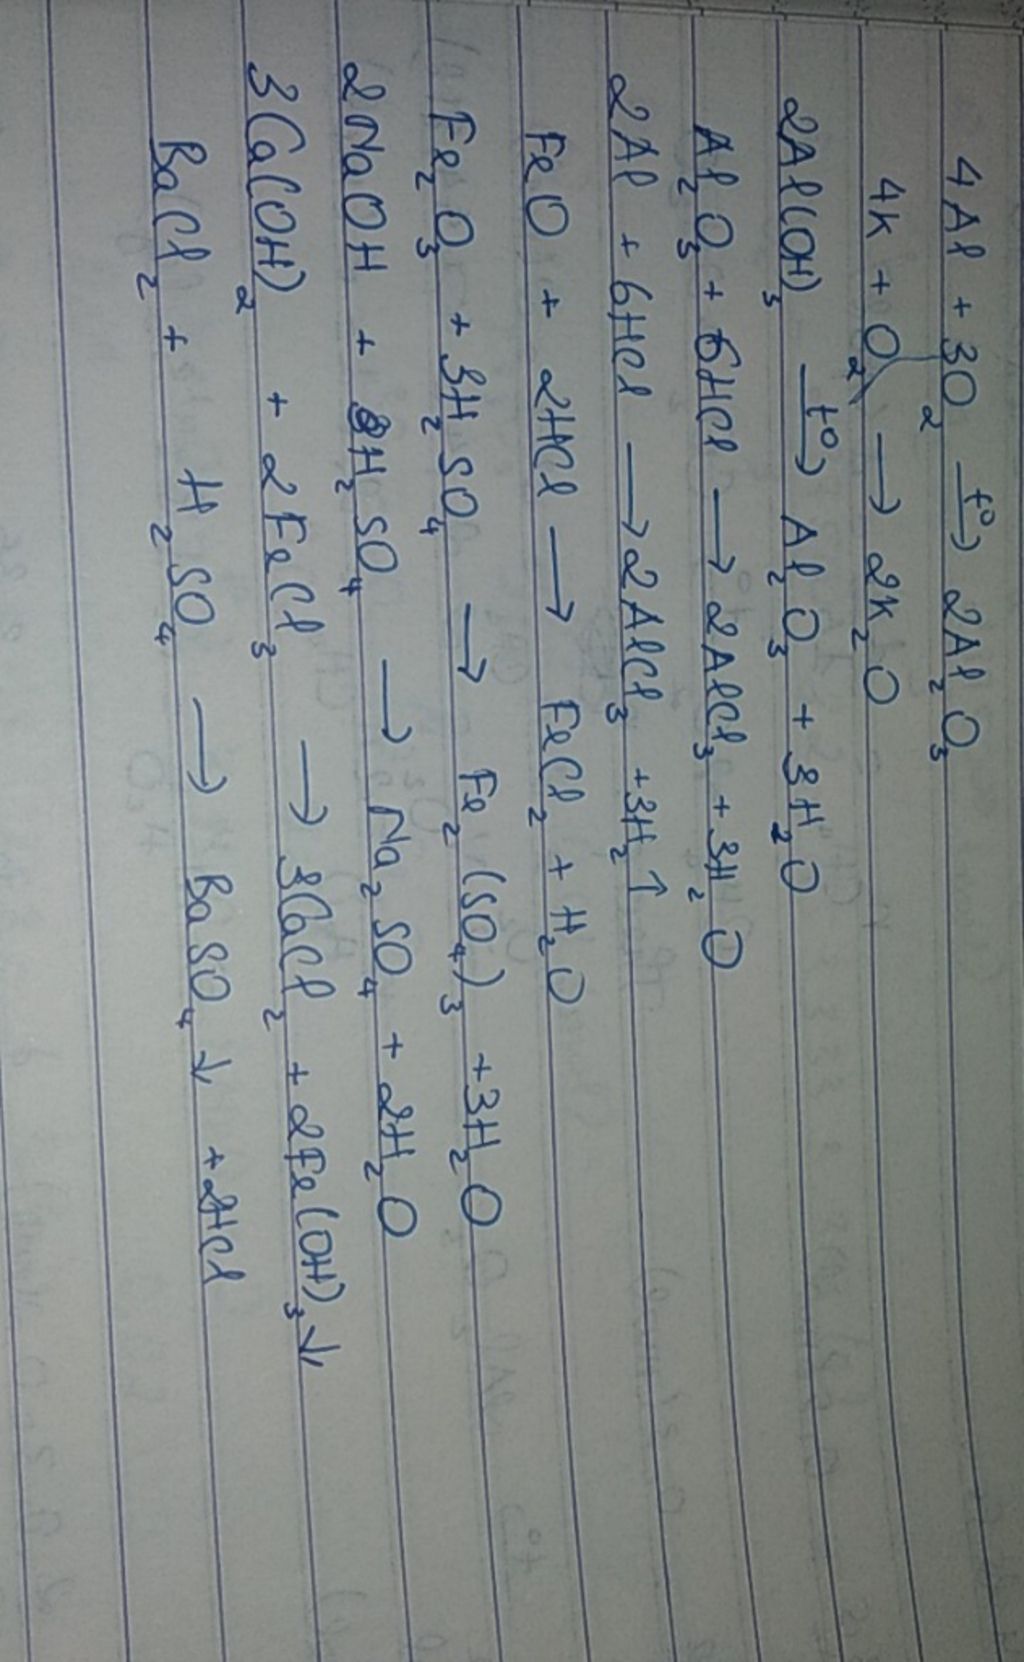 4Al + 3O₂ —t°→ 2Al₂O₃
4K + O₂ → 2K₂O
2Al(OH)₃ —t°→ Al₂O₃ + 3H₂O
Al₂O₃ + 6HCl → 2AlCl₃ + 3H₂O
2Al + 6HCl → 2AlCl₃ + 3H₂↑
FeO + 2HCl → FeCl₂ + H₂O
Fe₂O₃ + 3H₂SO₄ → Fe₂(SO₄)₃ + 3H₂O
2NaOH + H₂SO₄ → Na₂SO₄ + 2H₂O
3Ca(OH)₂ + 2FeCl₃ → 3CaCl₂ + 2Fe(OH)₃↓
BaCl₂ + H₂SO₄ → BaSO₄↓ + 2HCl